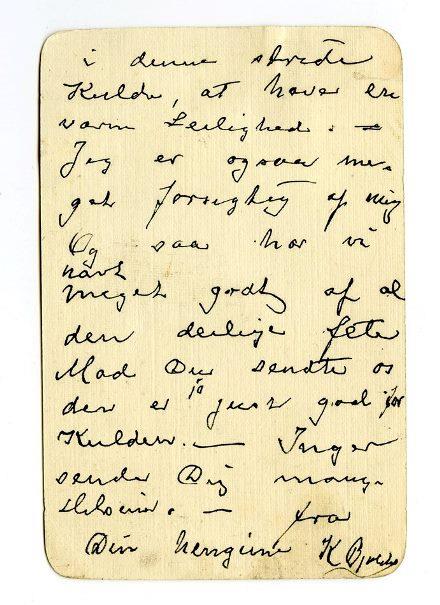 i denne strede
Kulde, at have en
varm Leilighed. —
Jeg er ogsaa me-
get forsigtig af mig
Og saa har vi
havt
meget godt af al
den deilige fete
Mad Du sendte os
den er jo just god for
Kulden. — Inger
sender Dig mange
Hilsener. — fra
Din hengivne K